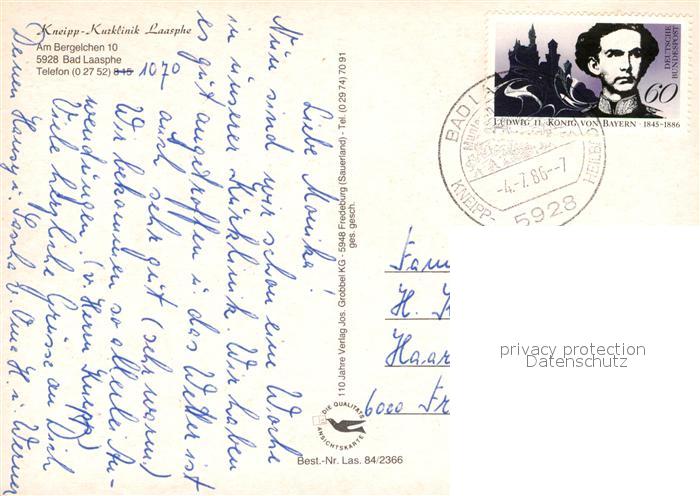 Kneipp-Kurklinik Laasphe
Am Bergelchen 10
5928 Bad Laasphe
Telefon (0 27 52) 845 1070
Liebe Monika!
Nun sind wir schon eine Woche
in unserer Kurklinik. Wir haben
es gut angetroffen u. das Wetter ist
auch sehr gut (sehr warm.)
Wir bekommen so allerlei An-
wendungen. (v. Herrn Kneipp)
Viele herzliche Grüsse an Dich
Deinen Hansg u. Sascha v. Oma H. u. Werner
110 Jahre Verlag Jos. Grobbel KG - 5948 Fredeburg (Sauerland) - Tel. (0 29 74) 70 91
ges. gesch.
DIE QUALITÄTS
ANSICHTSKARTE
Best.-Nr. Las. 84/2366
DEUTSCHE
BUNDESPOST
60
LUDWIG II. KÖNIG VON BAYERN · 1845-1886
BAD
-4.-7.86--7
KNEIPP-
HEILB
5928
Fam
H.
Haar
6000 Fr
privacy protection
Datenschutz